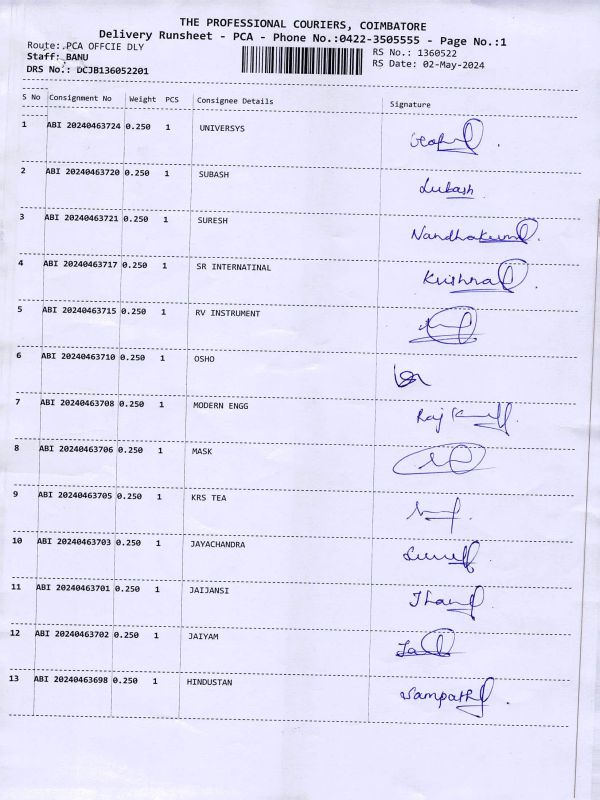 THE PROFESSIONAL COURIERS, COIMBATORE
Delivery Runsheet - PCA - Phone No.:0422-3505555 - Page No.:1
Route:.PCA OFFCIE DLY RS No.: 1360522
Staff: BANU RS Date: 02-May-2024
DRS No.: DCJB136052201
S No Consignment No Weight PCS Consignee Details Signature
1 ABI 20240463724 0.250 1 UNIVERSYS
2 ABI 20240463720 0.250 1 SUBASH Subash
3 ABI 20240463721 0.250 1 SURESH Nandhakumar
4 ABI 20240463717 0.250 1 SR INTERNATINAL Krishna
5 ABI 20240463715 0.250 1 RV INSTRUMENT
6 ABI 20240463710 0.250 1 OSHO
7 ABI 20240463708 0.250 1 MODERN ENGG Raj
8 ABI 20240463706 0.250 1 MASK
9 ABI 20240463705 0.250 1 KRS TEA
10 ABI 20240463703 0.250 1 JAYACHANDRA
11 ABI 20240463701 0.250 1 JAIJANSI
12 ABI 20240463702 0.250 1 JAIYAM
13 ABI 20240463698 0.250 1 HINDUSTAN Sampath